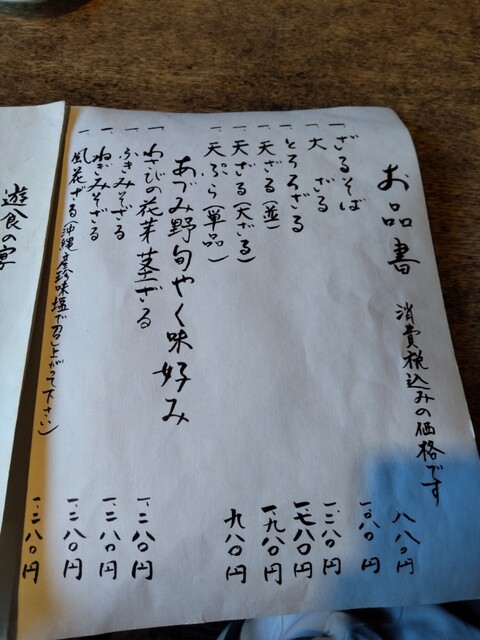 お品書 消費税込みの価格です
一、ざるそば 八八〇円
一、大ざる 一、〇八〇円
一、とろろざる 一、二八〇円
一、天ざる(並) 一、七八〇円
一、天ざる(大ざる) 一、九八〇円
一、天ぷら(単品) 九八〇円
あづみ野旬やく味好み
一、わさびの花芽茎ざる 一、二八〇円
一、ふきみそざる 一、二八〇円
一、ねぎみそざる 一、二八〇円
一、風花ざる(沖縄産珍味塩で召し上がって下さい) 一、二八〇円
遊食の宴